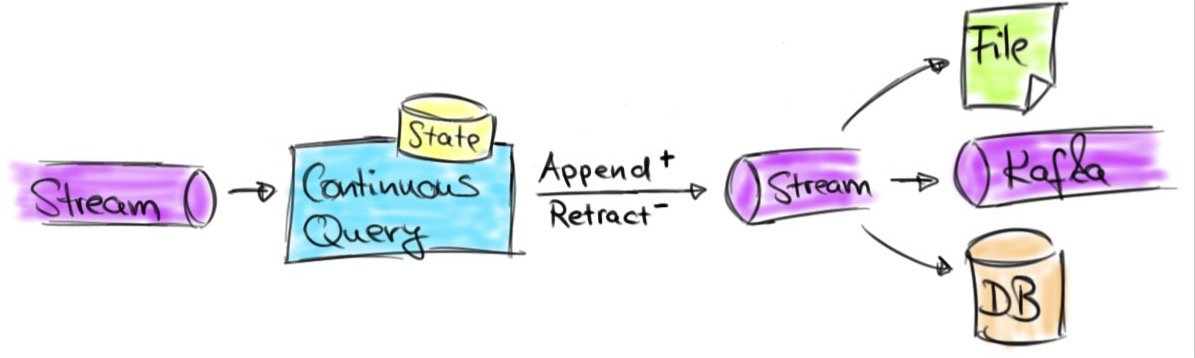 Stream
State
Continuous
Query
Append+
Retract-
Stream
File
Kafka
DB